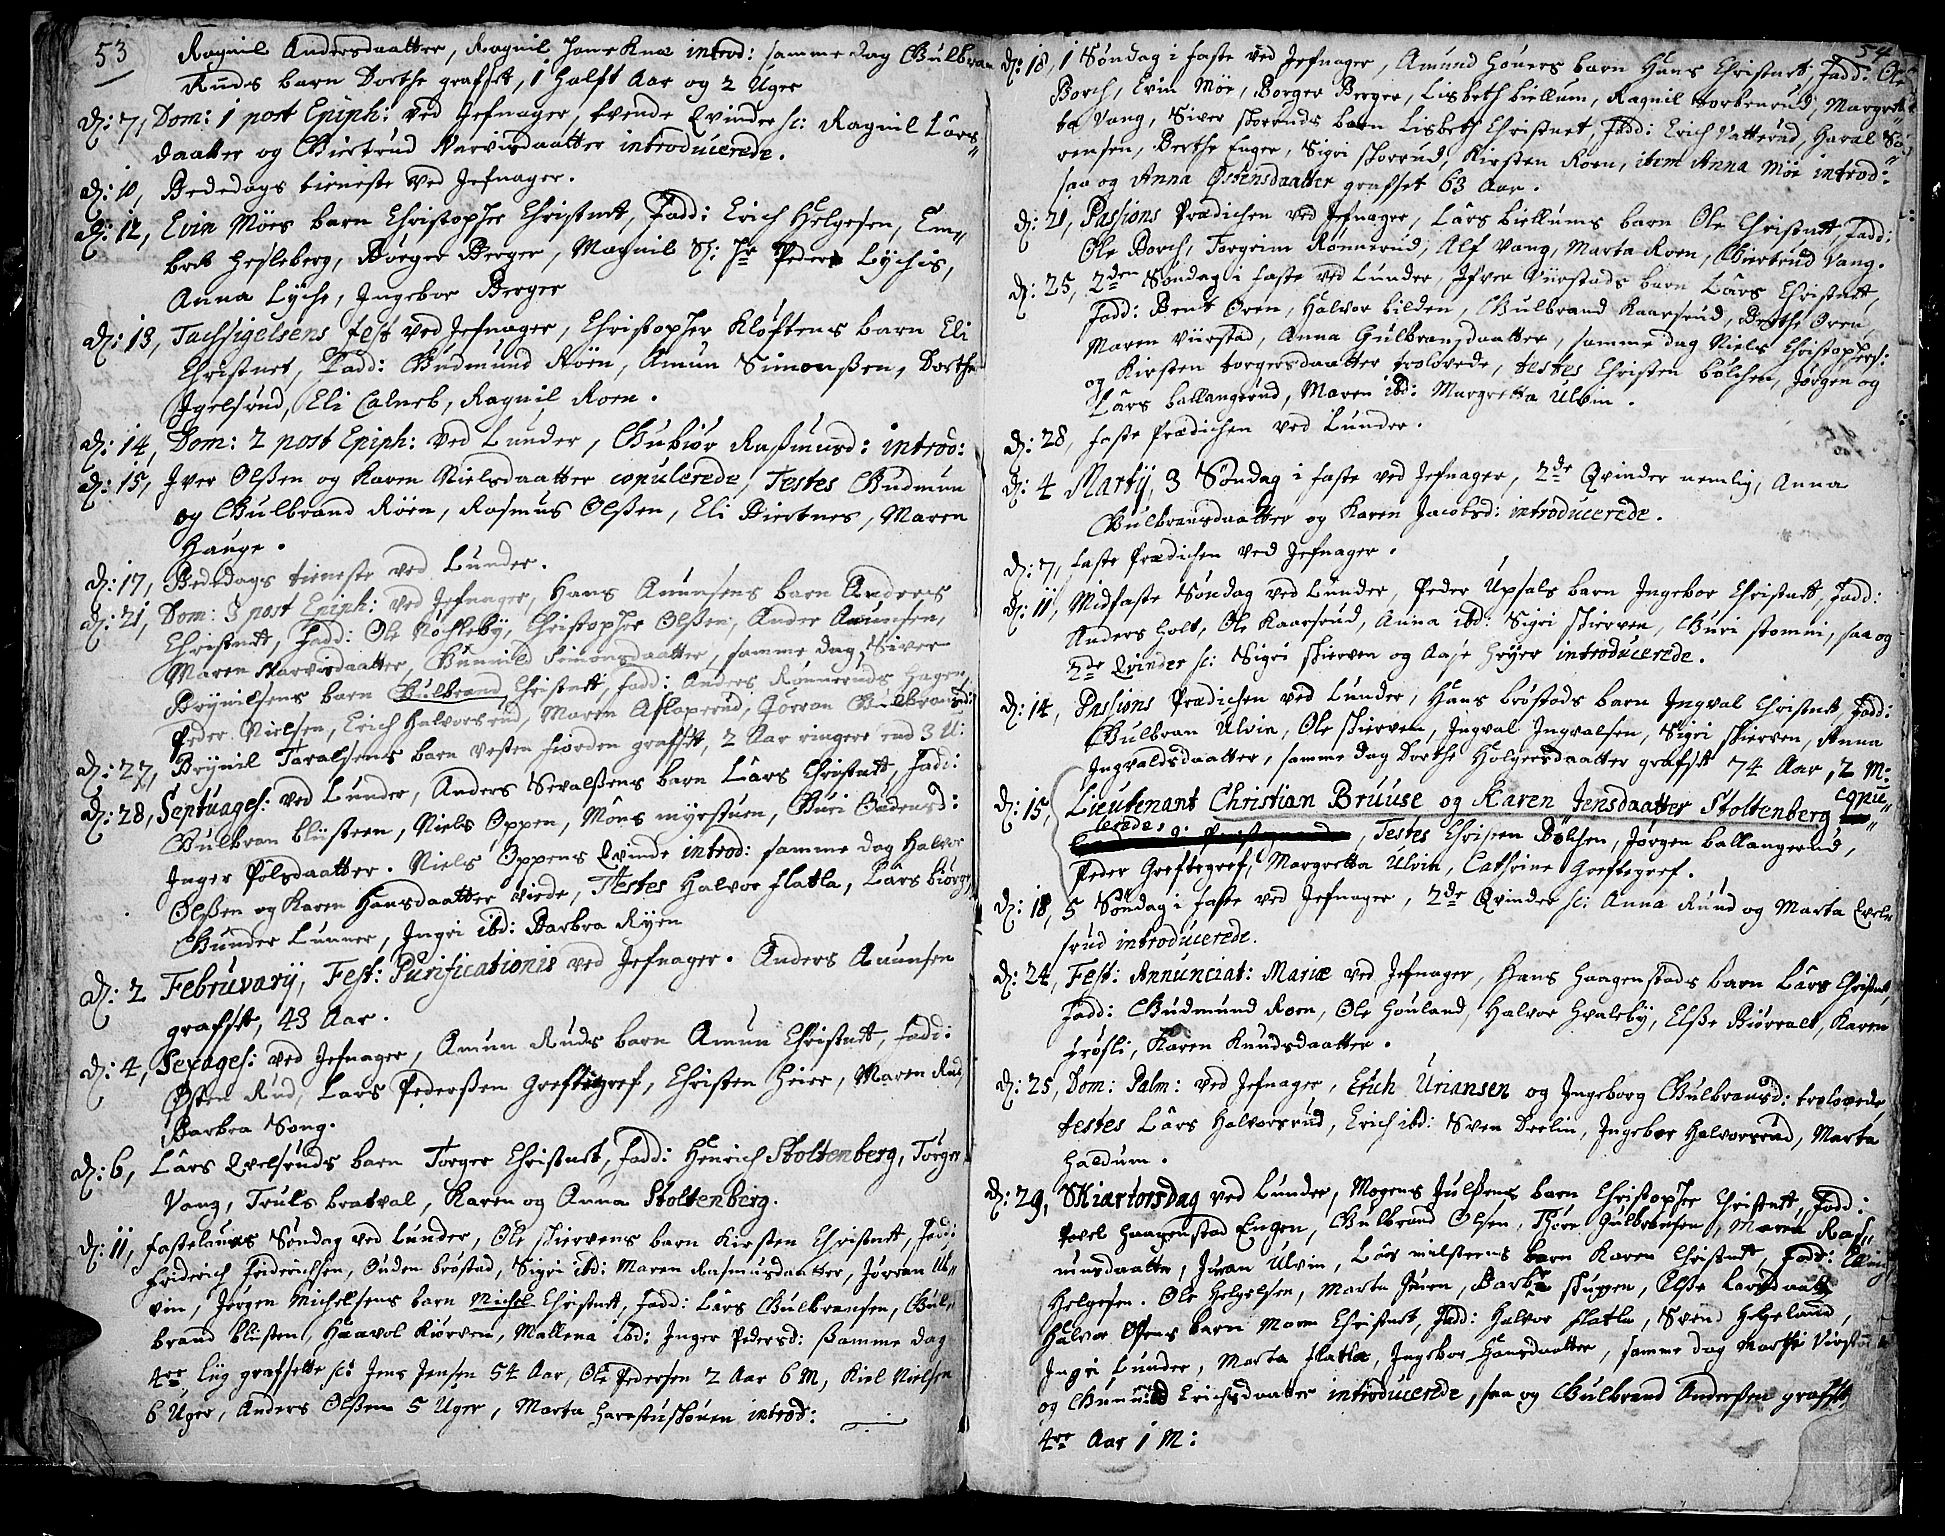 53
Ragnil Andersdaatter, Ragnil introd: samme dag Gulbran
Ruds barn Dorthe grafsat, 1 halft Aar og 2 Uger
D: 7, Dom: 1 post Epiph: ved Jefnager, tvende Qvinder sc: Ragnil Lârs"
daatter og Giertrud Narvisdaatter introducerede.
D: 10, Bededags tieneste ved Jefnager.
D: 12, Evin Möes barn Christopher Christnet, Fadd: Erich Helgesen, Em"
bret Hesleberg, Börger Berger, Magnil Sl: Hr Peder Lÿches,
Anna Lÿche, Ingebor Berger
D: 13, Tachsigelsens fest ved Jefnager, Christopher Klöftens barn Eli
Christnet, Fadd: Gudmund Röen, Amun Simonßen, Dorthe
Igelsrud, Eli Calneb, Ragnil Roen.
D: 14, Dom: 2 post Epiph: ved Lunder, Gubiör Raßmusd: introd:
D: 15, Iver Olßen og Karen Nielsdaatter copulerede, Testes Gudmun
og Gulbrand Röen, Rasmus Olßen, Eli Biertnes, Maren
Hauge.
D: 17, Bededags tieneste ved Lunder.
D: 21, Dom: 3 post Epiph: ved Jefnager, Hans Amunsens barn Anders
Christnet, Fadd: Ole Christopher Olßen, Ander Amunsen,
Maren Narvisdaatter, Gunnild Simonsdaatter, samme dag Siver
Brÿnilsens barn Gulbrand Christnet, Fadd: Anders Rönneruds
Peder Nielsen, Erich Halvorsrud, Maren Aslaperud, Göran Gulbransd:
D: 27, Brÿnil Taralsens barn vesten fiorden grafsat, 2 Aar ringere end 3 U:
D: 28, Septuages: ved Lunder, Anders Sevalßens barn Lârs Christnet, Fadd:
Gulbran blÿsteen, Niels Oppen, Môns mÿrstuen, Guri Oudensd:
Inger Pôlsdaatter. Niels Oppens Qvinde introd: samme dag Halvor
Olßen og Karen Hansdaatter viede, Testes Halvor flatla, Lârs biörge,
Gunder Lunner, Ingri ibd: Barbra Rÿen
D: 2 Februvarÿ, Fest: Purificationis ved Jefnager. Anders Amunsen
grafsat, 43 Aar.
D: 4, Sexages: ved Jefnager, Amun Ruds barn Amun Christnet, Fadd:
Östen Rud, Lars Pederßen Greftegref, Christen Heier, Maren Rud,
Barbra Song.
D: 6, Lârs Qvelsruds barn Torger Christnet, Fadd: Henrich Stoltenberg, Torger
Vang, Truls bratval, Karen og Anna Stoltenberg.
D: 11, fastelauns Söndag ved Lunder, Ole skiervens barn Kirsten Christnet, Fadd:
Friderich Friderichsen, Ouden bröstad, Sigri ibd: Maren Rasmusdaatter, Jöran Ul"
vin, Jörgen Michelsens barn Michel Christnet, Fadd: Lârs Gulbransen, Gul"
brand blüsten, Haavol Kiörven, Mallena ibd: Inger Pedersd: ßamme dag
4re Liig grafsatte sc: Jens Jensen 54 Aar, Ole Pedersen 2 Aar 6 M, Kiel Nielsen
6 Uger, Anders Olßen 5 Uger, Marta introd:
54
D: 18, 1 Söndag i faste ved Jefnager, Amund Houers barn Hans Christnet, Fadd: Ole
Borch, Evin Möe, Borger Berger, Lisbeth biellum, Ragnil torbenrud, Margret"
ta Vang, Siver skoruds barn Lisbeth Christnet, Fadd: Erich Vatterud, Haral Sö"
rensen, Berthe Enger, Sigri skorrud, Kirsten Roen, item Anna Möe introd:
saa og Anna Östensdaatter grafset 63 Aar.
D: 21, Passions Prædichen ved Jefnager, Lârs biellums barn Ole Christnet, Fadd:
Ole Borch, Torgrim Rönnerud, Alf Vang, Marta Roen, Giertrud Vang.
D: 25, 2den Söndag i faste ved Lunder, Ifver Viirstads barn Lârs Christnet,
Fadd: Bent Oren, Halvor bilden, Gulbrand Kaarsrud, Berthe Oren,
Maren Viirstad, Anna Gulbransdaatter, samme dag Niels Christophers:
og Kirsten torgersdaatter trolovede, testes Christen bölchen, Jörgen og
Lârs ballangrud, Maren ibd: Margretta Ulven.
D: 28, faste Prædichen ved Lunder.
D: 4 Martÿ, 3 Söndag i faste ved Jefnager, 2de Qvinder nemlig, Anna
Gulbransdaatter og Karen Jacobsd: introducerede.
D: 7, faste Prædichen ved Jefnager.
D: 11, Midfaste Söndag ved Lunder, Peder Upsals barn Ingebor Christnet, Fadd:
Anders Holt, Ole Kaarsrud, Anna ibd: Sigri skierven, Guri stomni, saa og
2de Qvinder sc: Sigri skierven og Aase Hrÿer introducerede.
D: 14, Passions Prædichen ved Lunder, Hans bröstads barn Ingval Christnet, Fadd:
Gulbran Ulvin, Ole skierven, Ingval Ingvalsen, Sigri skierven, Anna
Ingvaldsdaatter, samme dag Dorthe Holgersdaatter grafset 74 Aar, 2 M:
D: 15, Lieutenant Christian Bruuse og Karen Jensdaatter Stoltenberg copu"
lerede, Testes Christen Bölchen, Jörgen ballangrud,
Peder Greftegref, Margretta Ulvin, Cathrine Greftegref.
D: 18, 5 Söndag i faste ved Jefnager, 2de Qvinder sc: Anna Ruud og Marta Qvel"
srud introducerede.
D: 24, Fest: Annunciat: Mariæ ved Jefnager, Hans Haagenstads barn Lârs Christnet,
Fadd: Gudmund Roen, Ole Houland, Halvor Hvaleby, Elße Biörralt, Karen
fröslj, Karen Knudsdaatter.
D: 25, Dom: Palm: ved Jefnager, Erich Uriansen og Ingeborg Gulbransd: trolovede,
testes Lârs Halvorsrud, Erich ibd: Sven Deelin, Ingebor Halvorsrud, Marta
Haldum.
D: 29, Skiærtorsdag ved Lunder, Mogens Iulßens barn Christopher Christnet, Fadd:
Povel Haagenstad Engen, Gulbrand Olsen, Thore Gulbransen, Maren Ras"
musdaatter, Jöran Ulvin, Lârs milsteens barn Karen Christnet, Fadd:
Helgesen. Ole Helgesen, Marta Juen, Barbra skugen, Elße Larsdaatter
Halvor Olsens barn Maren Christnet, Fadd: Halvor flatla, Svend Helgeland,
Ingri Lunder, Marta flatla, Ingebor Hansdaatter, samme dag Marthe Viirstad
og Gunnild Erichsdaatter introducerede, saa og Gulbrand Anderßen grafset
4re Aar 1 M: